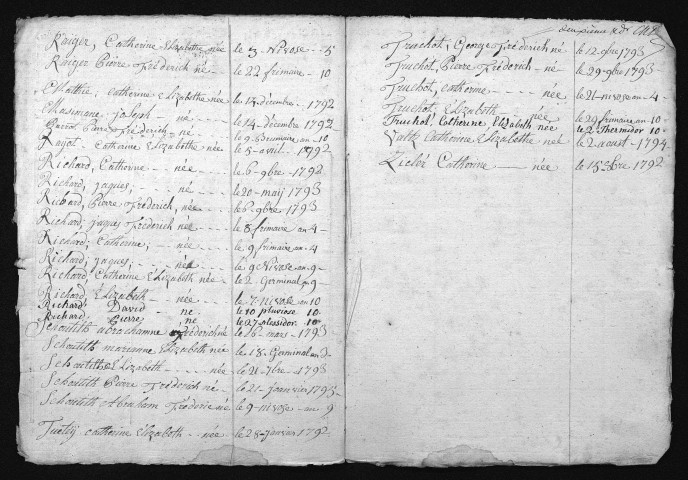 Ringer, Catherine Elizabethe née le 3 Nivose 5
Ringer Pierre Frédérich né le 22 frimaire 10
Mathie, catherine Elizabethe née le 13 décembre 1792
Masimane joseph né le 14 décembre 1792
Pierre Frédérich né le 9 Brumaire an 10
Rayot Catherine Elizabethe née le 5 avril 1792
Richard, Catherine née le 6 9bre 1792
Richard, jaques, né le 20 maÿ 1793
Richard, Pierre Frédérich, née le 6 9bre 1793
Richard, jaques frédérich née le 8 frimaire an 4
Richard, Catherine, née le 9 frimaire an 4
Richard, jaques, née le 9 Nivose an 9
Richard, Catherine Elizabeth née le 2 Germinal an 9
Richard, Elizabeth née le 7 nivose an 10
Richard, David né le 10 pluviose 10
Richard, Pierre, né le 27 10
Schoutith abrachamme frédérich né le 26 mars 1793
Schoutith marianne Elizabeth née le 18 Germinal an 3
Schoutith Elizabeth née le 21 7bre 1793
Schoutith Pierre frédérich né le 21 janvier 1793
Schoutith Abraham frédéric né le 9 nivose an 9
Tuetÿ catherine Elizabeth née le 28 janvier 1792
Truchot, George frédérich né le 12 1793
Truchot, Pierre Frédérich né le 29 9bre 1793
Truchot, catherine née le 21 nivose an 4
Truchot, Elizabeth née le 29 frimaire an 10
Truchot, Catherine Elizabeth née le 2 Thermidor 10
Valtz Catherine Elizabethe née le 2 aoust 1794
Catherine née le 15 1792